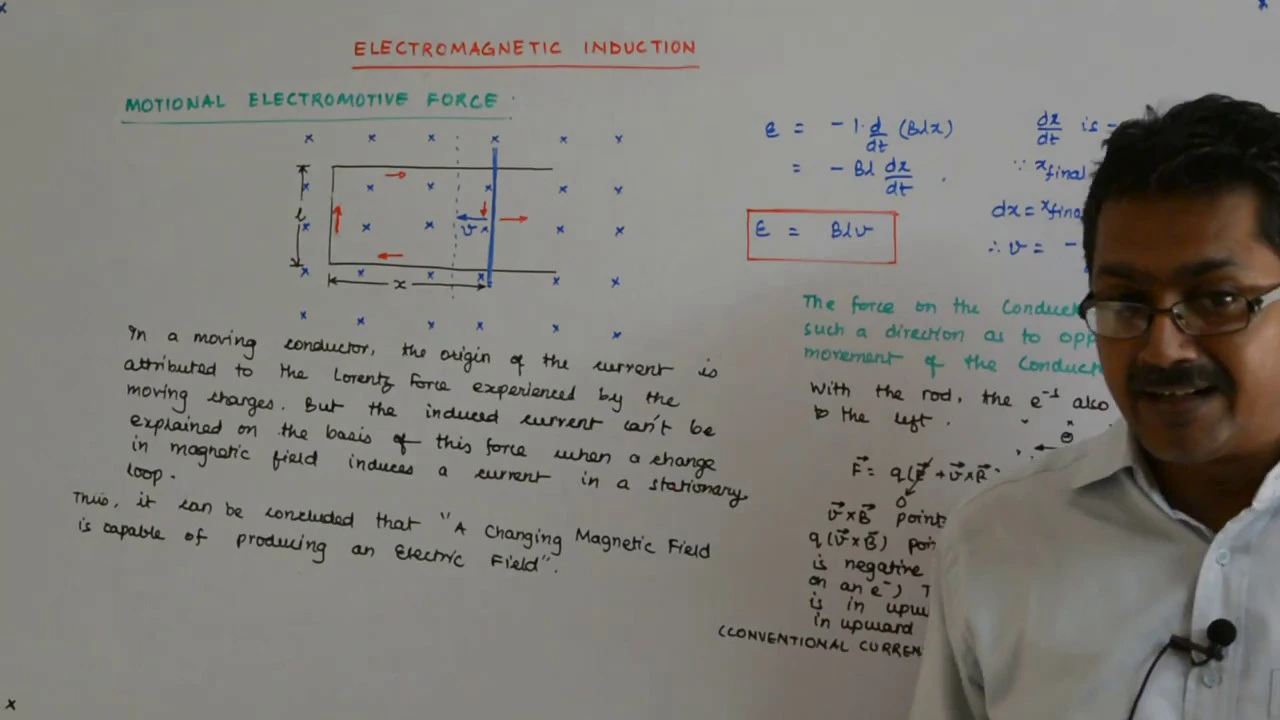 ELECTROMAGNETIC INDUCTION
MOTIONAL ELECTROMOTIVE FORCE
l
v
x
In a moving conductor, the origin of the current is
attributed to the Lorentz Force experienced by the
moving charges. But the induced current can't be
explained on the basis of this force when a change
in magnetic field induces a current in a stationary
loop.
Thus, it can be concluded that "A Changing Magnetic Field
is capable of producing an Electric Field".
ε = -1. d/dt (Blx)
= -Bl dx/dt
ε = Blv
dx/dt is -
∵ x final
dx = x final
∴ v = -
The force on the
such a direction as to
movement of the
With the rod, the e⁻¹ also
to the left.
F⃗ = q(E⃗ + v⃗ × B⃗
0
v⃗ × B⃗ point
q(v⃗ × B⃗)
is negative
on an e⁻)
is in
in upward
(CONVENTIONAL